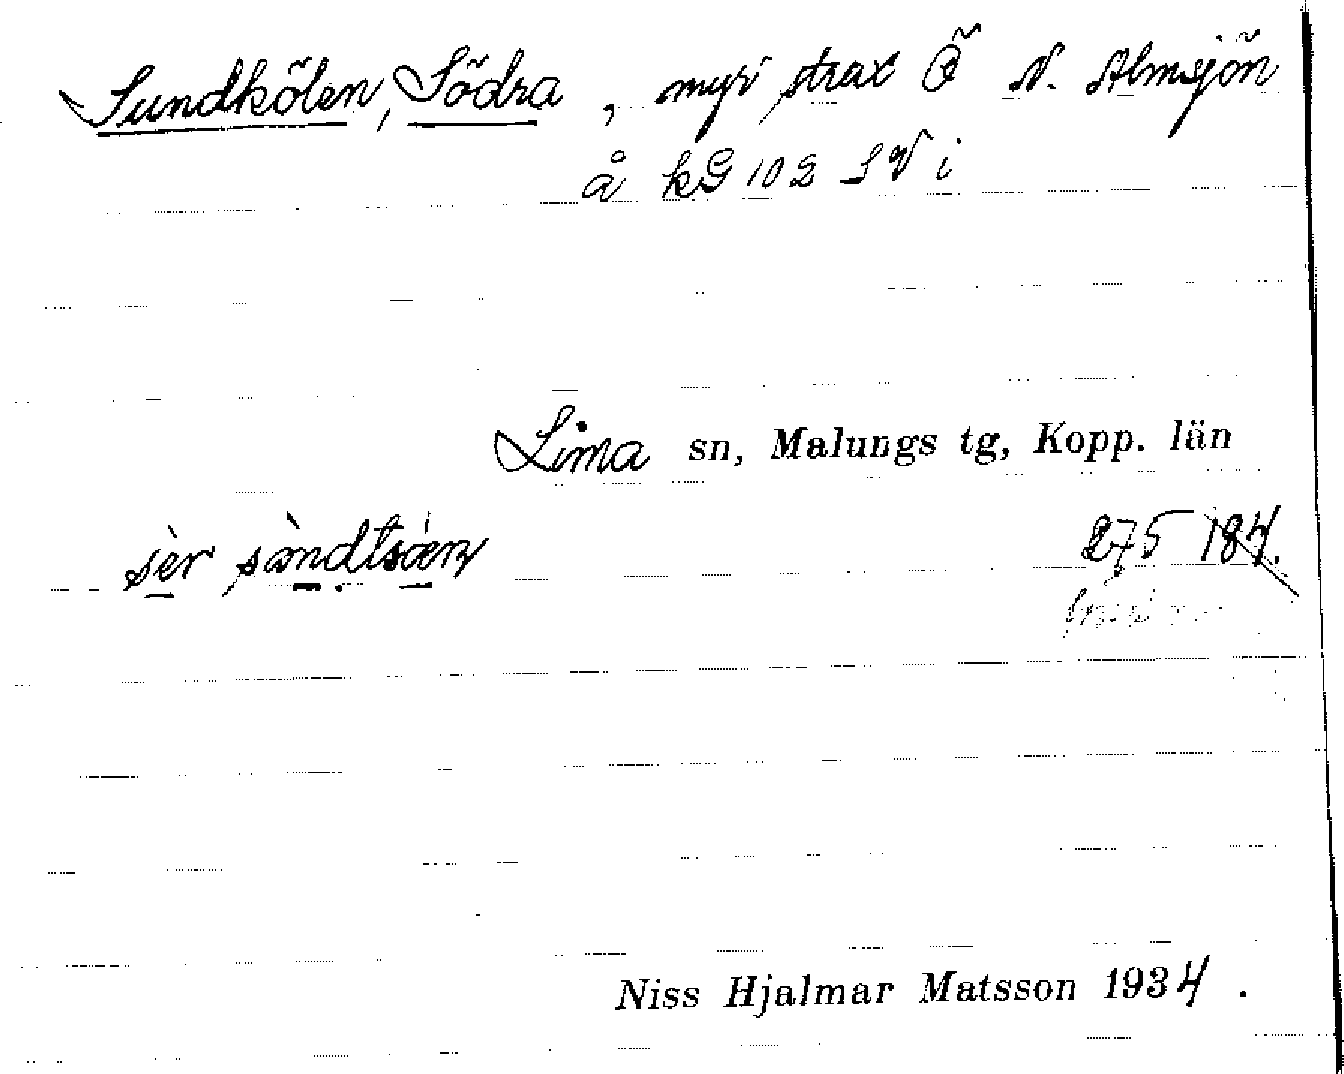 Sundkölen, Södra, myr strax Ö N. Almsjön
å kG 102 SV i
Lima sn, Malungs tg, Kopp. län
sèr sàndtsǿen 275 184.
Niss Hjalmar Matsson 1934.